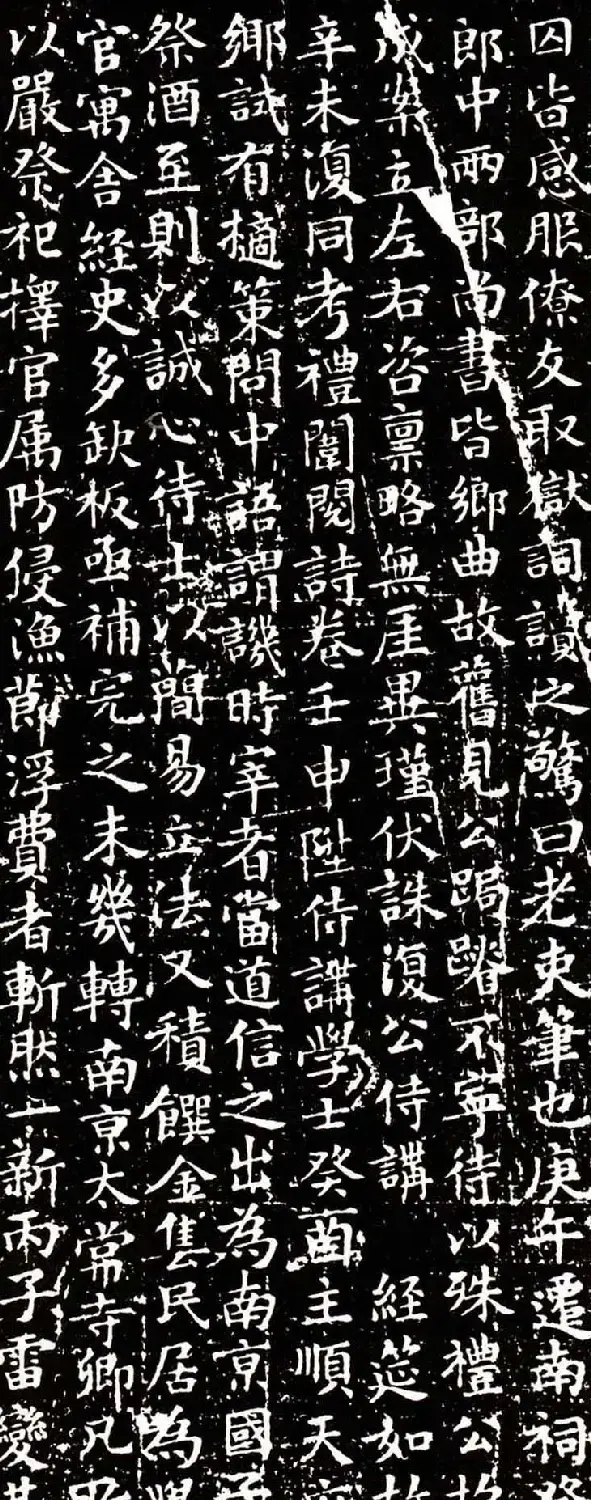 囚皆感服僚友取獄詞讀之驚曰老吏筆也庚午遷南祠祭
郎中兩部尚書皆鄉曲故舊見公跼蹐不寧待以殊禮公
成案立左右咨稟略無厓異瑾伏誅復公侍講 經筵如故
辛未復同考禮闈閱詩卷壬申陞侍講學士癸酉主順天
鄉試有摘策問中語謂譏時宰者當道信之出為南京國子
祭酒至則以誠心待士以簡易立法又積饌金售民居為
官寓舍經史多缺板亟補完之未幾轉南京太常寺卿凡
以嚴祭祀擇官属防侵漁節浮費者斬然一新丙子雷變